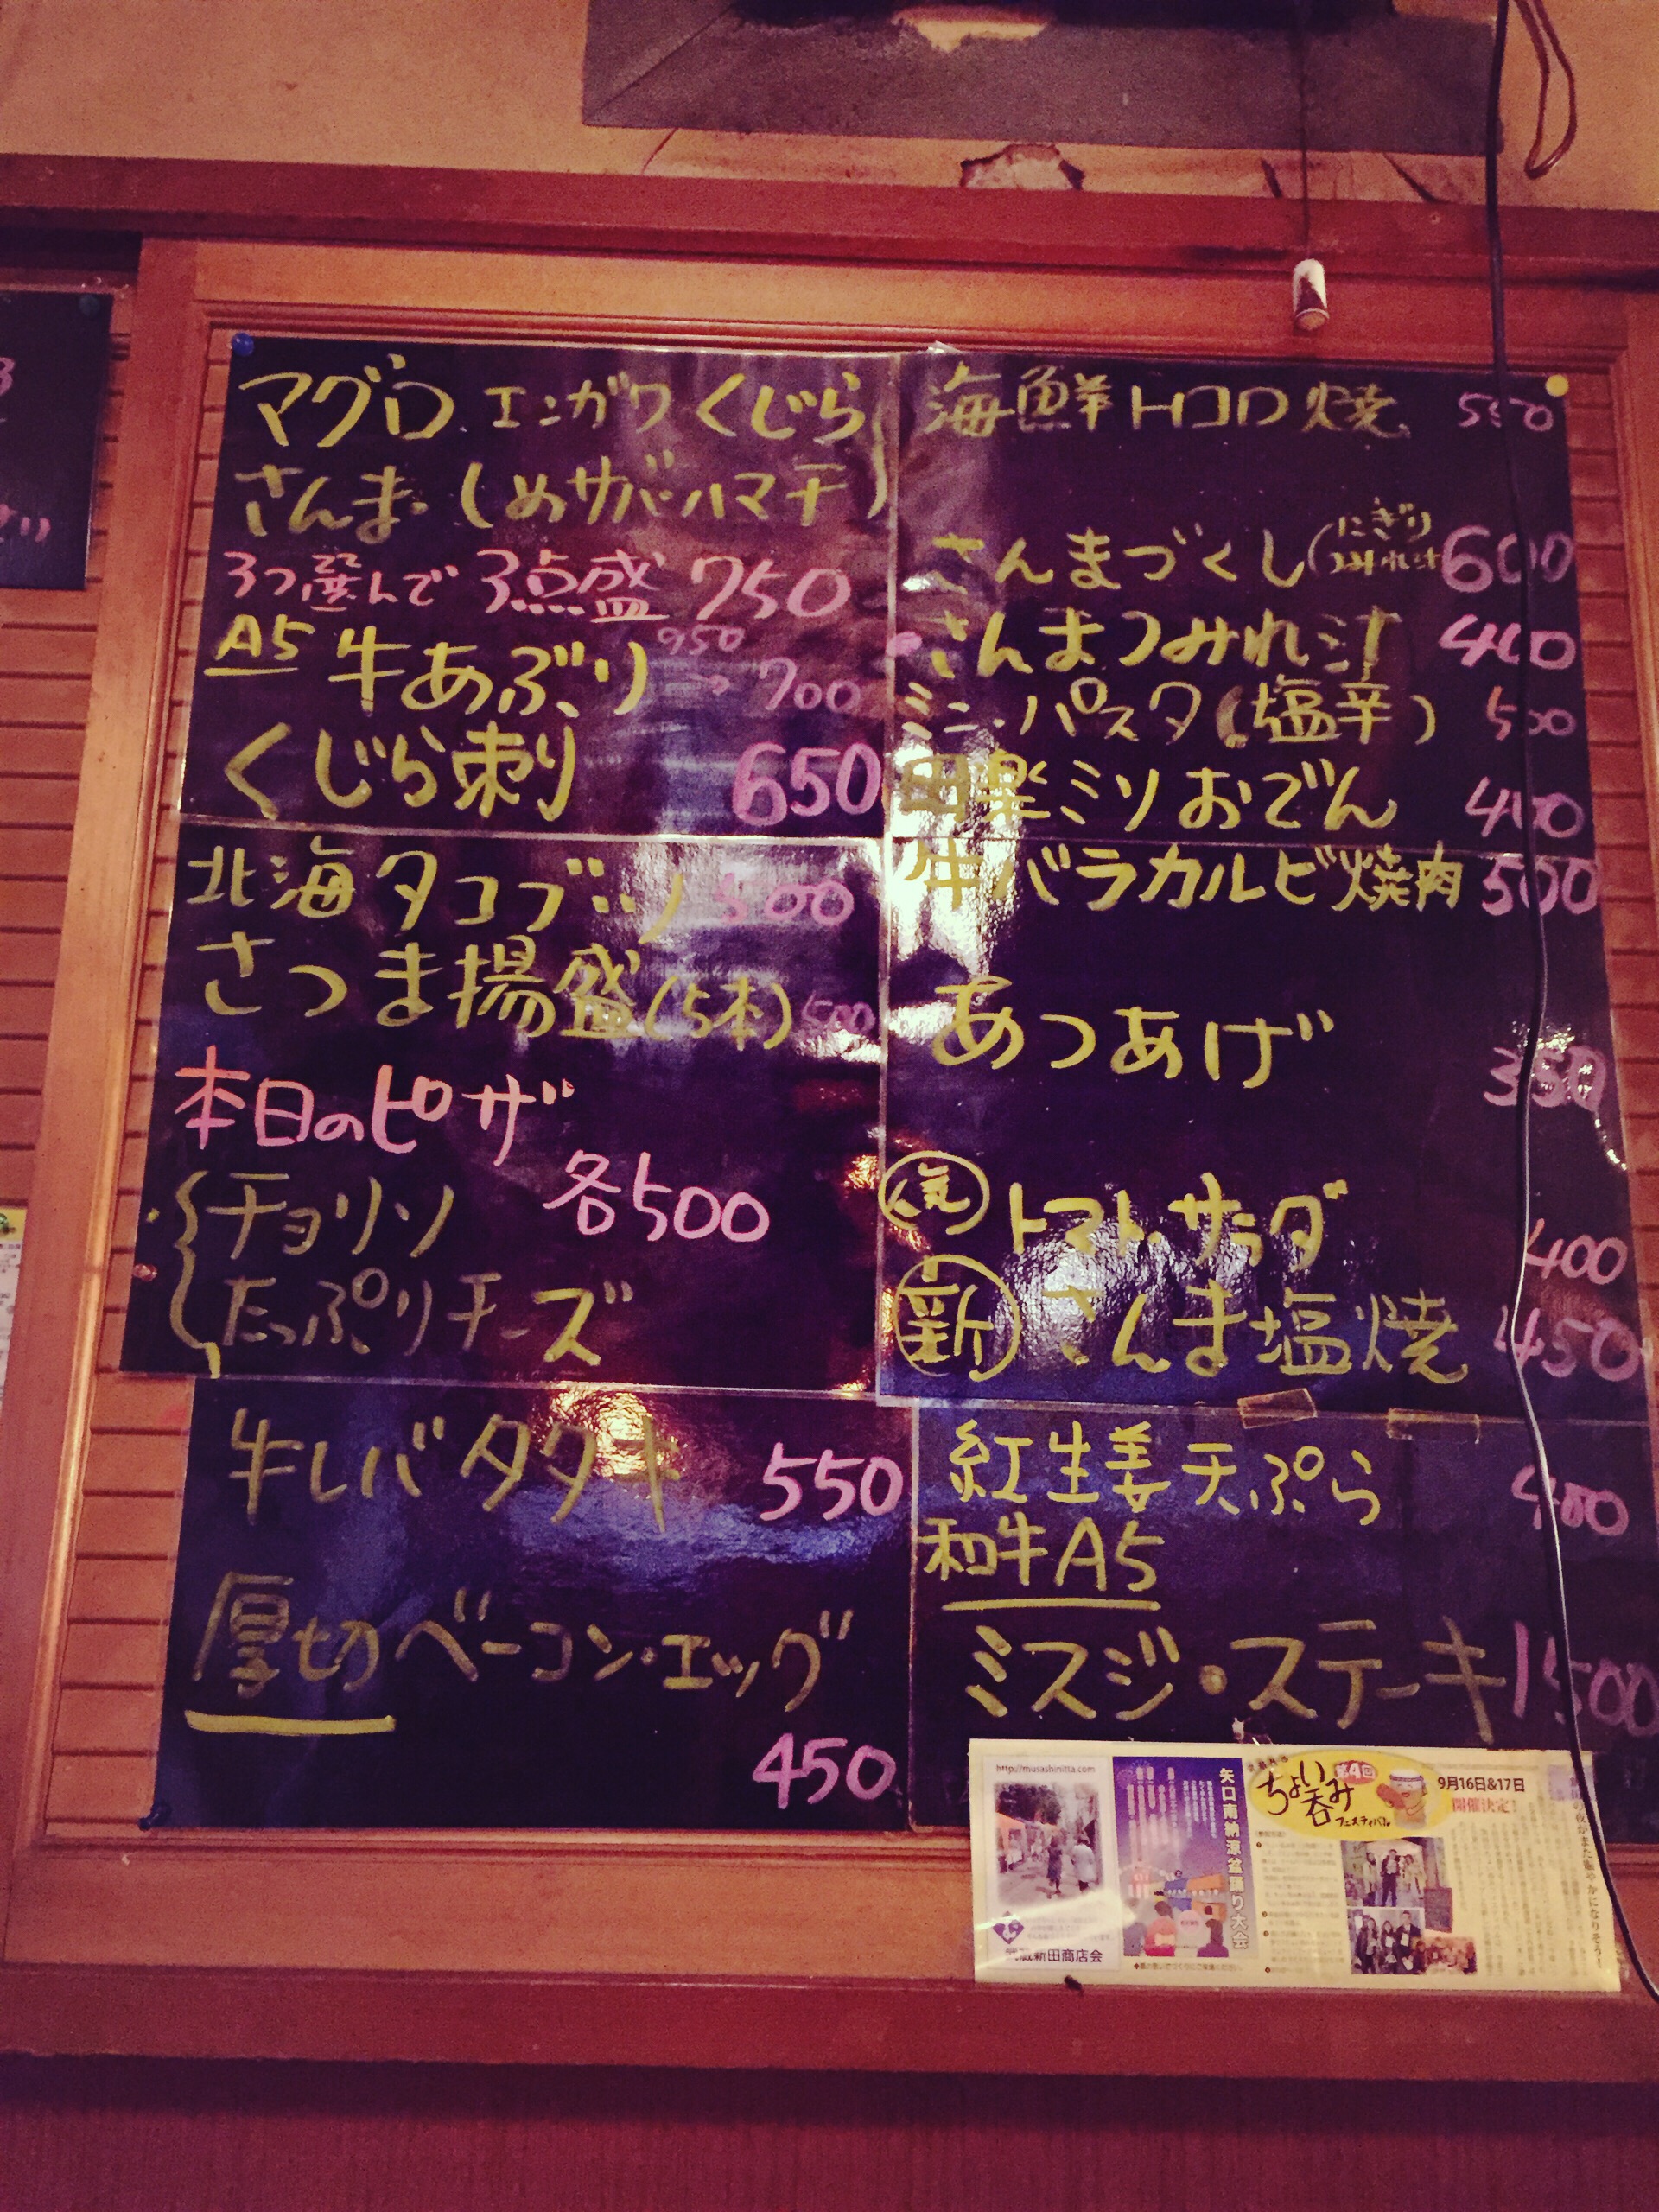 マグロ エンガワ くじら
さんま しめサバ ハマチ
3つ選んで 3点盛 750
A5 牛あぶり 950→700
くじら刺 650
北海タコブツ 500
さつま揚盛(5本) 500
本日のピザ
各500
チョリソ
たっぷりチーズ
牛レバタタキ 550
厚切ベーコン・エッグ
450
海鮮トロロ焼 550
さんまづくし(にぎり
つみれ汁 600
さんまつみれ汁 400
ミニ・パスタ(塩辛) 500
田楽ミソおでん 400
牛バラカルビ焼肉 500
あつあげ
350
人気 トマト、サラダ 400
新 さんま塩焼 450
紅生姜天ぷら 400
和牛A5
ミスジ・ステーキ 1500
http://musashinitta.com
武蔵新田商店会
矢口南納涼盆踊り大会
第4回
ちょい呑み
フェスティバル
9月16日&17日
開催決定!